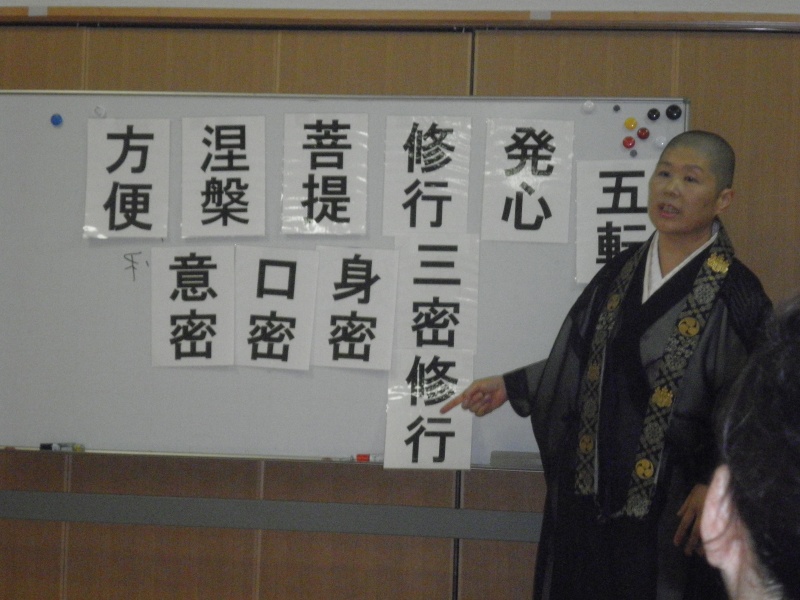 五転
発心
修行
菩提
涅槃
方便
三密修行
身密
口密
意密